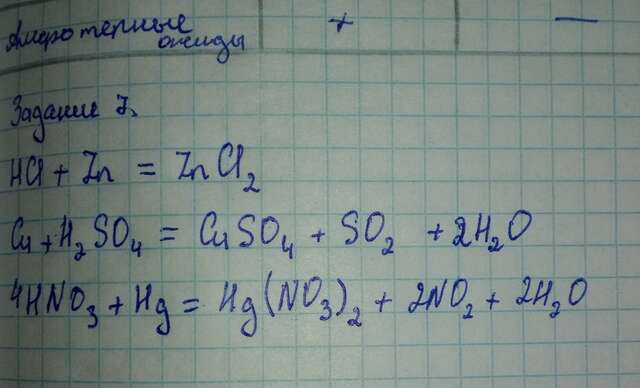 Амфотерные + —
оксиды
Задание 7.
HCl + Zn = ZnCl₂
Cu + H₂SO₄ = CuSO₄ + SO₂ + 2H₂O
4HNO₃ + Hg = Hg(NO₃)₂ + 2NO₂ + 2H₂O